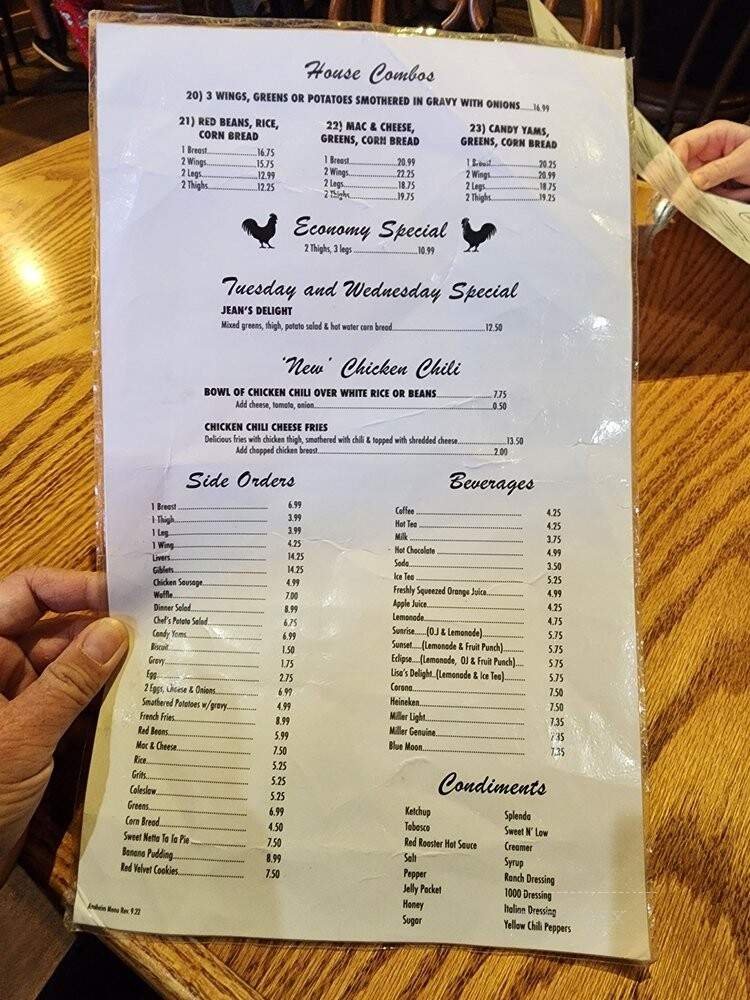 House Combos
20) 3 WINGS, GREENS OR POTATOES SMOTHERED IN GRAVY WITH ONIONS......16.99
21) RED BEANS, RICE,
CORN BREAD
1 Breast........................16.75
2 Wings........................15.75
2 Legs..........................12.99
2 Thighs.......................12.25
22) MAC & CHEESE,
GREENS, CORN BREAD
1 Breast........................20.99
2 Wings........................22.25
2 Legs..........................18.75
2 Thighs.......................19.75
23) CANDY YAMS,
GREENS, CORN BREAD
1 Breast........................20.25
2 Wings........................20.99
2 Legs..........................18.75
2 Thighs.......................19.25
Economy Special
2 Thighs, 3 legs ..............................10.99
Tuesday and Wednesday Special
JEAN'S DELIGHT
Mixed greens, thigh, potato salad & hot water corn bread..............................12.50
'New' Chicken Chili
BOWL OF CHICKEN CHILI OVER WHITE RICE OR BEANS.................... 7.75
Add cheese, tomato, onion..............................0.50
CHICKEN CHILI CHEESE FRIES
Delicious fries with chicken thigh, smothered with chili & topped with shredded cheese....................13.50
Add chopped chicken breast..............................2.00
Side Orders
1 Breast .............................. 6.99
1 Thigh.............................. 3.99
1 Leg.............................. 3.99
1 Wing.............................. 4.25
Livers.............................. 14.25
Giblets.............................. 14.25
Chicken Sausage.................... 4.99
Waffle.............................. 7.00
Dinner Salad.............................. 8.99
Chef's Potato Salad.................... 6.75
Candy Yams.............................. 6.99
Biscuit.............................. 1.50
Gravy.............................. 1.75
Egg.............................. 2.75
2 Eggs, Cheese & Onions.................... 6.99
Smothered Potatoes w/gravy.................... 4.99
French Fries.............................. 8.99
Red Beans.............................. 5.99
Mac & Cheese.............................. 7.50
Rice.............................. 5.25
Grits.............................. 5.25
Coleslaw.............................. 5.25
Greens.............................. 6.99
Corn Bread.............................. 4.50
Sweet Netta Ta Ta Pie .................... 7.50
Banana Pudding.................... 8.99
Red Velvet Cookies.................... 7.50
Beverages
Coffee .............................. 4.25
Hot Tea .............................. 4.25
Milk .............................. 3.75
Hot Chocolate .............................. 4.99
Soda.............................. 3.50
Ice Tea .............................. 5.25
Freshly Squeezed Orange Juice.......... 4.99
Apple Juice.............................. 4.25
Lemonade.............................. 4.75
Sunrise.....(OJ & Lemonade).......... 5.75
Sunset....(Lemonade & Fruit Punch).... 5.75
Eclipse....(Lemonade, OJ & Fruit Punch).... 5.75
Lisa's Delight..(Lemonade & Ice Tea)........ 5.75
Corona.............................. 7.50
Heineken.............................. 7.50
Miller Light.............................. 7.35
Miller Genuine.............................. 7.35
Blue Moon.............................. 7.35
Condiments
Ketchup
Tabasco
Red Rooster Hot Sauce
Salt
Pepper
Jelly Packet
Honey
Sugar
Splenda
Sweet N' Low
Creamer
Syrup
Ranch Dressing
1000 Dressing
Italian Dressing
Yellow Chili Peppers
Anaheim Menu Rev. 9.22